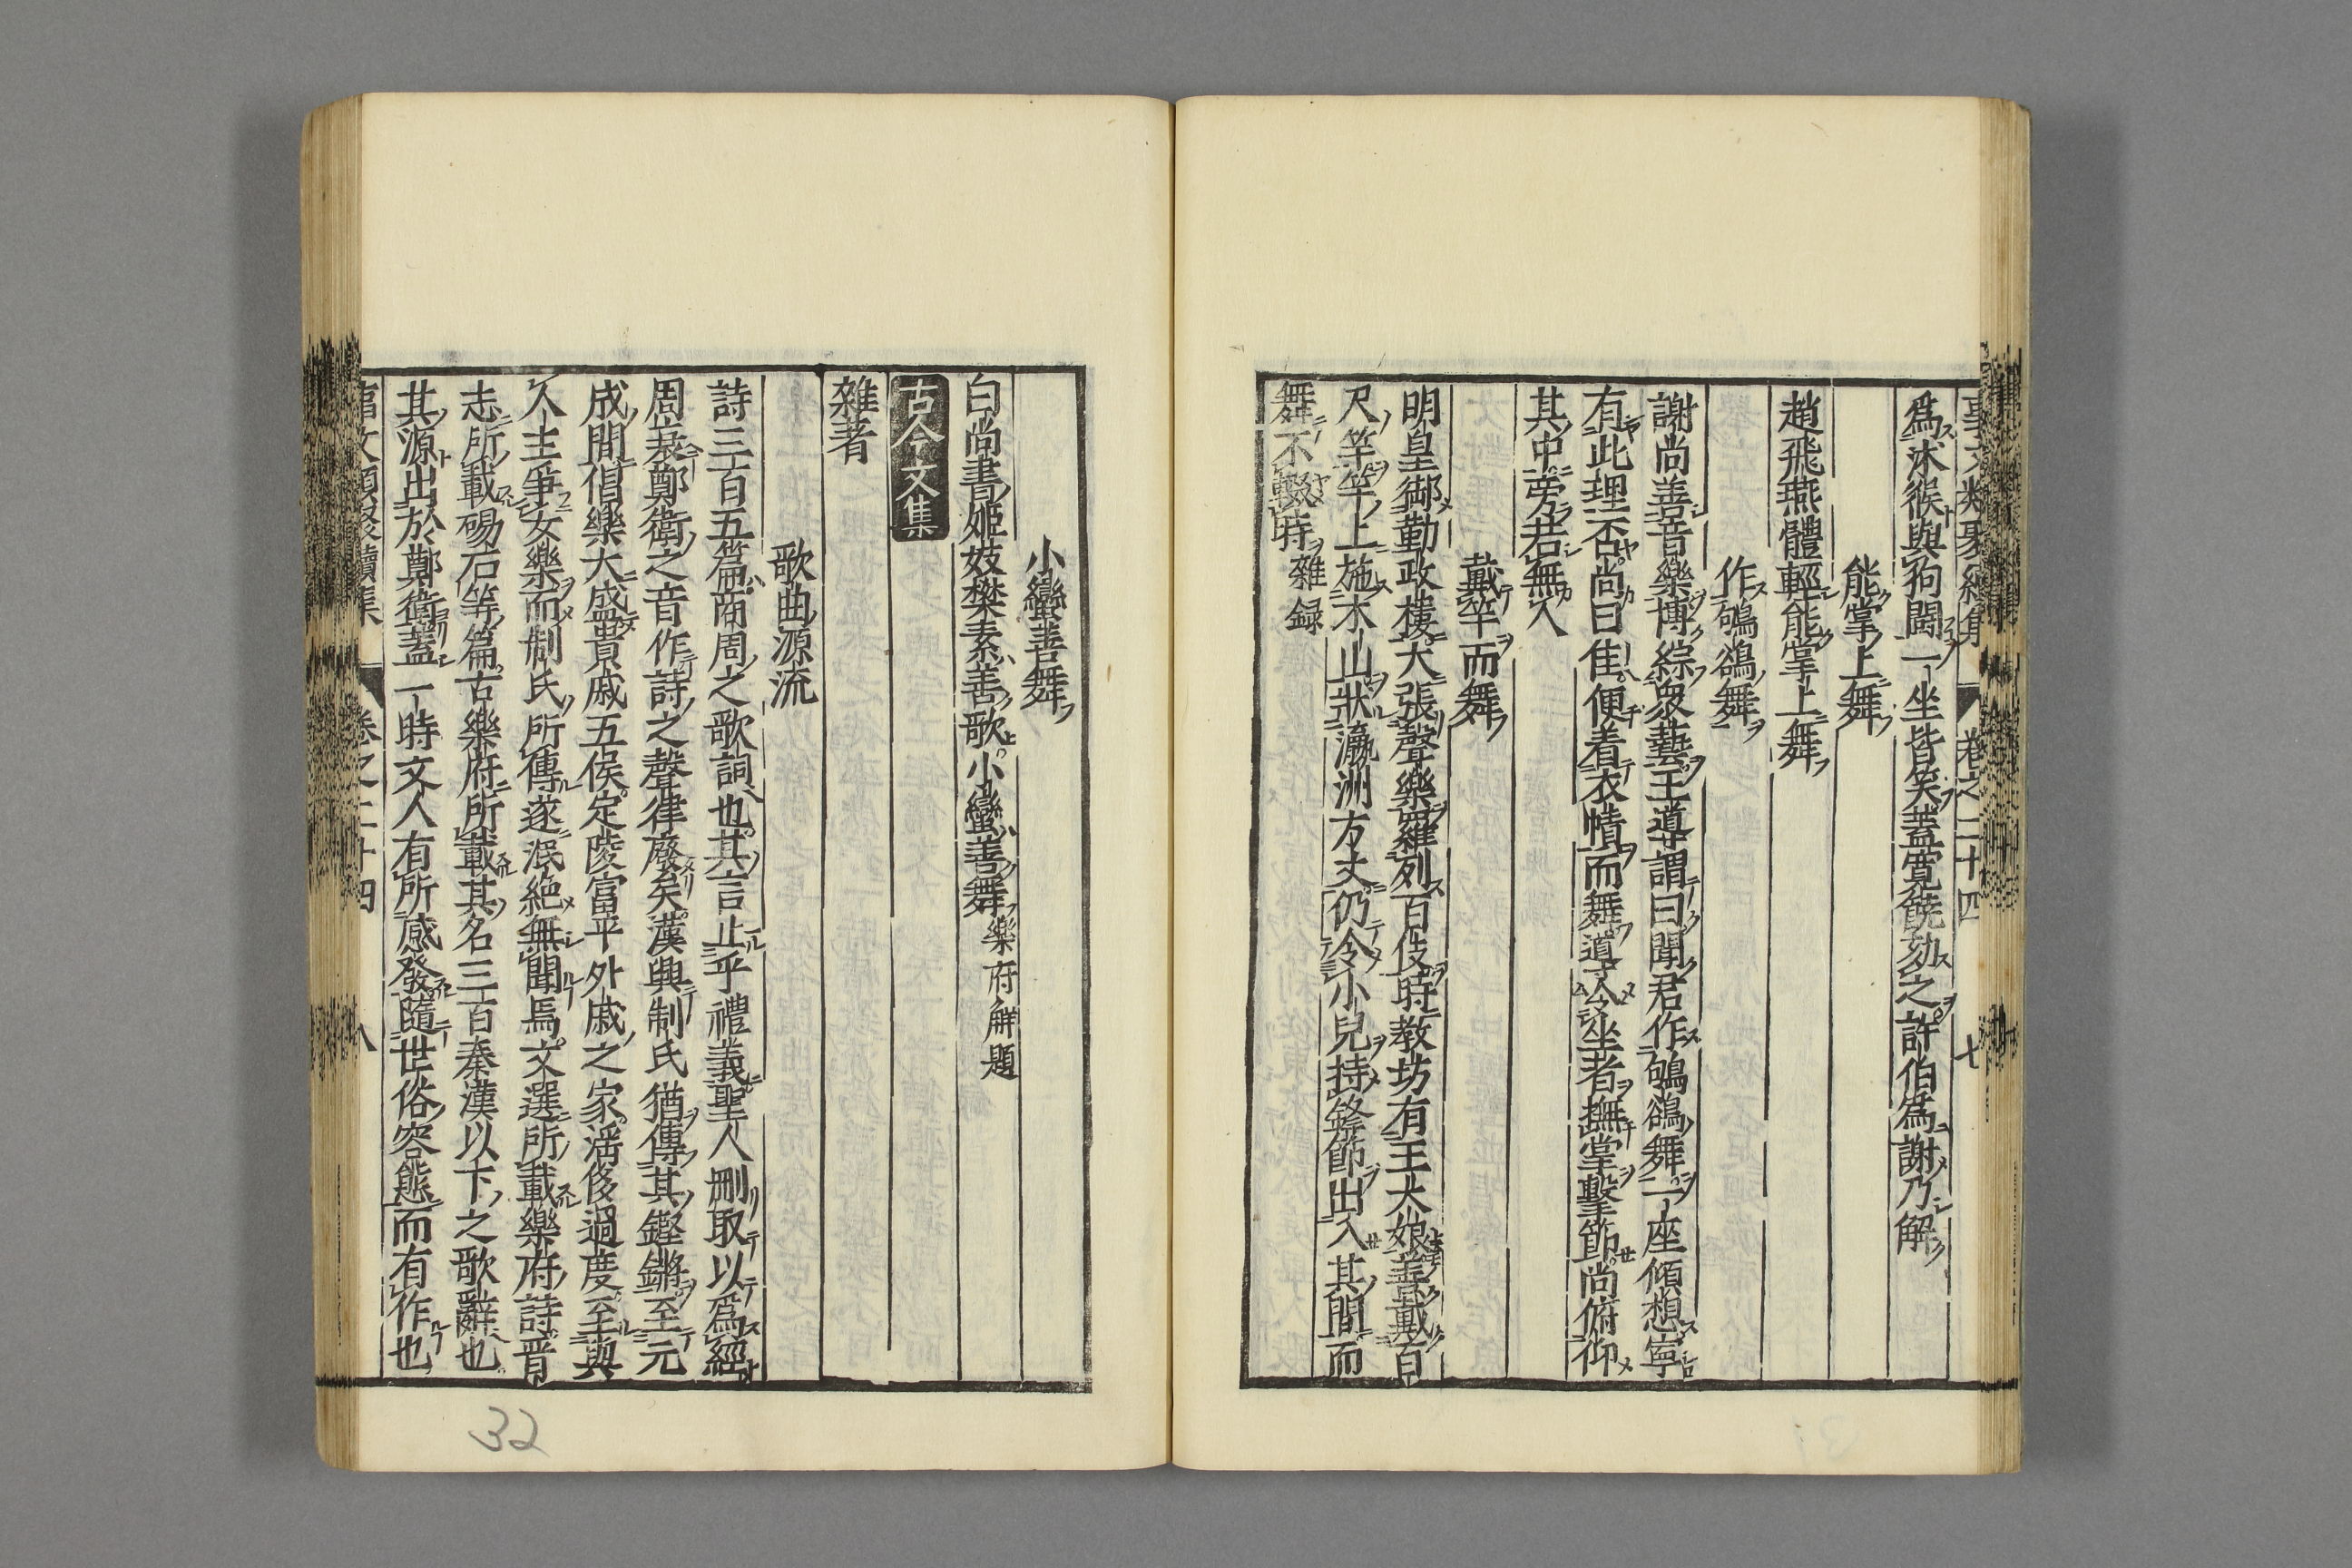 事文類聚續集 卷之二十四 七
爲沐猴與狗鬪一坐皆笑蓋寬饒劾之許伯爲謝乃解
能掌上舞
趙飛燕體輕能掌上舞
作鴝鵒舞
謝尚善音樂博綜衆藝王導謂曰聞君作鴝鵒舞一座傾想寧
有此理否尚曰佳便着衣幘而舞導令坐者撫掌擊節尚俯仰
其中旁若無人
戴竿而舞
明皇御勤政樓大張聲樂羅列百伎時教坊有王大娘善戴百
尺竿竿上施木山狀瀛洲方丈仍令小兒持絳節出入其間而
舞不輟時雜録
小蠻善舞
白尚書姬妓樊素善歌小蠻善舞樂府解題
古今文集
雜著
歌曲源流
詩三百五篇商周之歌詞也其言止乎禮義聖人刪取以爲經
周衰鄭衛之音作詩之聲律廢矣漢興制氏猶傳其鏗鏘至元
成間倡樂大盛貴戚五侯定陵富平外戚之家淫侈過度至與
人主爭女樂而制氏所傳遂泯絶無聞焉文選所載樂府詩晋
志所載碣石等篇古樂府所載其名三百秦漢以下之歌辭也
其源出於鄭衛蓋一時文人有所感發隨世俗容態而有作也
事文類聚續集 卷之二十四 八
32